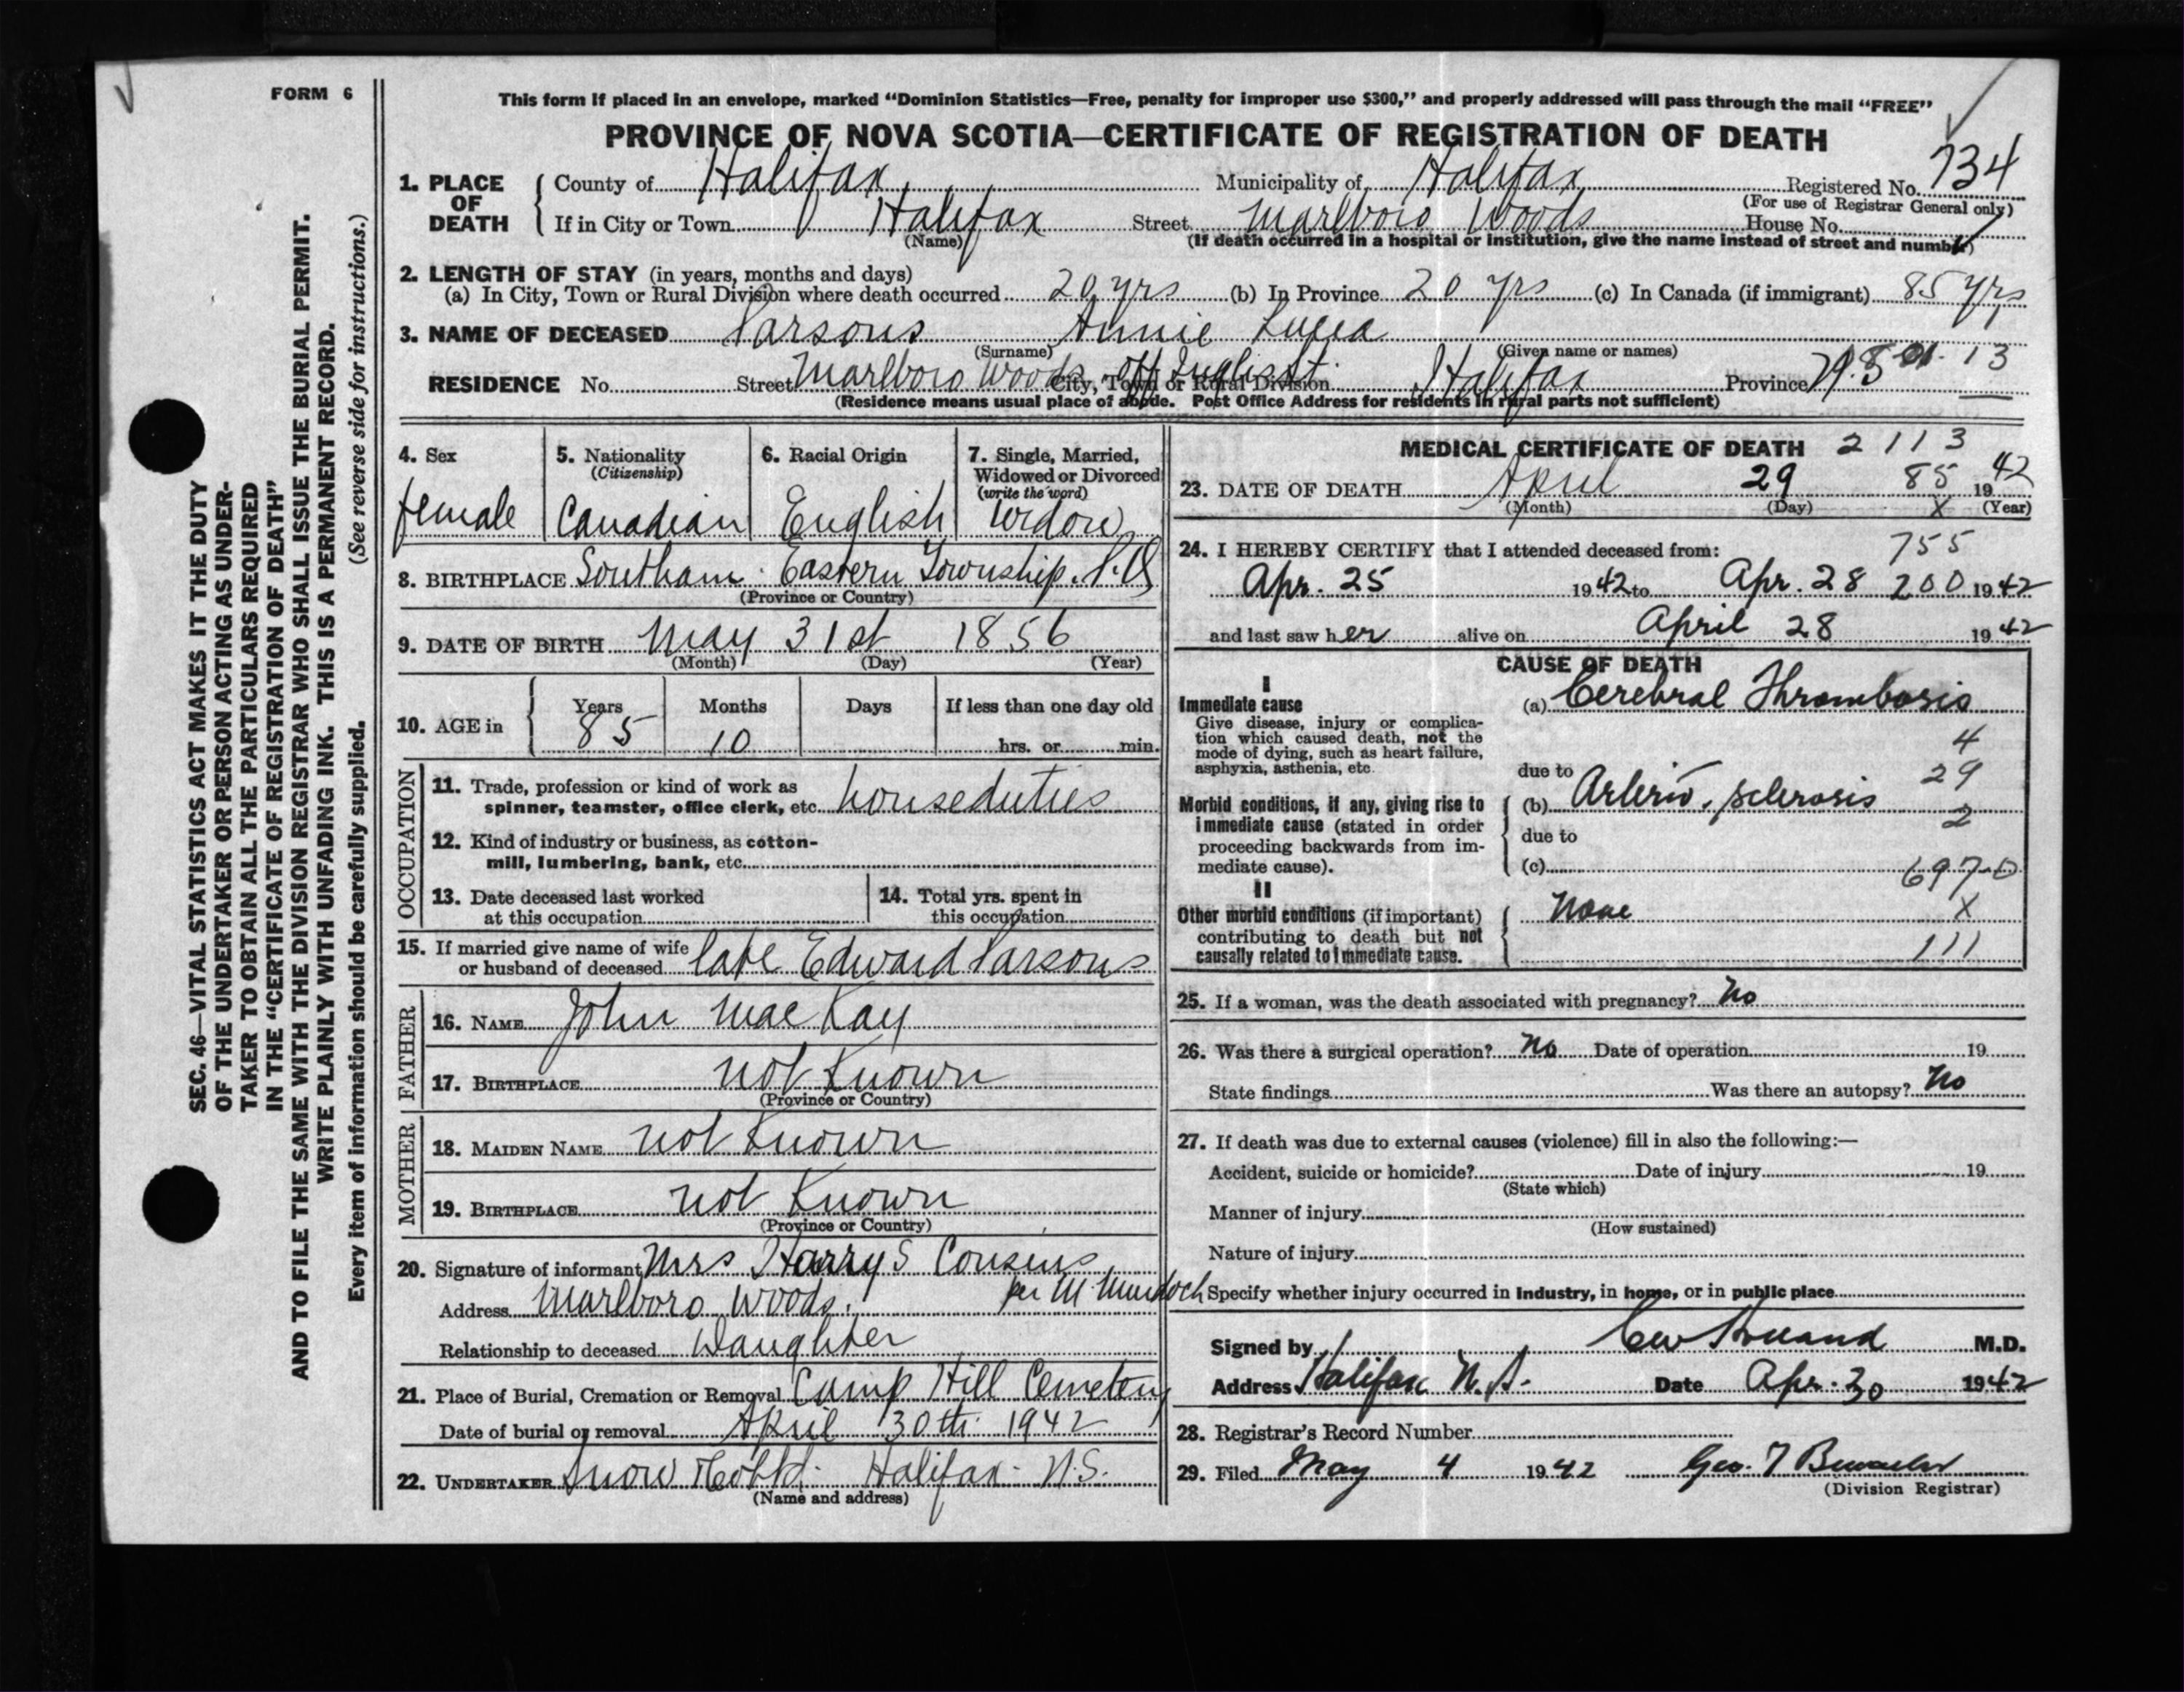 FORM 6
This form if placed in an envelope, marked “Dominion Statistics—Free, penalty for improper use $300,” and properly addressed will pass through the mail “FREE”
PROVINCE OF NOVA SCOTIA—CERTIFICATE OF REGISTRATION OF DEATH
1. PLACE OF DEATH County of Halifax Municipality of Halifax Registered No. 734
(For use of Registrar General only)
If in City or Town Halifax Street Marlboro Woods House No.
(Name) (If death occurred in a hospital or institution, give the name instead of street and number)
2. LENGTH OF STAY (in years, months and days)
(a) In City, Town or Rural Division where death occurred 20 yrs (b) In Province 20 yrs (c) In Canada (if immigrant) 85 yrs
3. NAME OF DECEASED Parsons Annie
(Surname) (Given name or names)
RESIDENCE No. Street Marlboro Woods off Inglis St. City, Town or Rural Division Halifax Province N.S 13
(Residence means usual place of abode. Post Office Address for residents in rural parts not sufficient)
4. Sex 5. Nationality (Citizenship) 6. Racial Origin 7. Single, Married, Widowed or Divorced (write the word)
female Canadian English Widow
8. BIRTHPLACE Eastern Township. P.Q
(Province or Country)
9. DATE OF BIRTH May 31st 1856
(Month) (Day) (Year)
10. AGE in Years Months Days If less than one day old
85 10 hrs. or min.
OCCUPATION
11. Trade, profession or kind of work as
spinner, teamster, office clerk, etc. houseduties
12. Kind of industry or business, as cotton-
mill, lumbering, bank, etc.
13. Date deceased last worked
at this occupation
14. Total yrs. spent in
this occupation
15. If married give name of wife
or husband of deceased late Edward Parsons
FATHER
16. NAME John Mac Kay
17. BIRTHPLACE not Known
(Province or Country)
MOTHER
18. MAIDEN NAME not Known
19. BIRTHPLACE not Known
(Province or Country)
20. Signature of informant Mrs Harry S Cousins
Address Marlboro Woods. per M Murdoch
Relationship to deceased Daughter
21. Place of Burial, Cremation or Removal Camp Hill Cemetery
Date of burial or removal April 30th 1942
22. UNDERTAKER Snow Halifax N.S.
(Name and address)
MEDICAL CERTIFICATE OF DEATH 2113
23. DATE OF DEATH April 29 85 1942
(Month) (Day) X (Year)
24. I HEREBY CERTIFY that I attended deceased from: 755
Apr. 25 1942 to Apr. 28 200 1942
and last saw her alive on April 28 1942
CAUSE OF DEATH
I
Immediate cause (a) Cerebral Thrombosis
Give disease, injury or complica-
tion which caused death, not the
mode of dying, such as heart failure,
asphyxia, asthenia, etc.
4
due to 29
Morbid conditions, if any, giving rise to
immediate cause (stated in order
proceeding backwards from im-
mediate cause).
(b) Arterio. sclerosis 2
due to
(c) 697-0
II
Other morbid conditions (if important)
contributing to death but not
causally related to immediate cause.
None X
111
25. If a woman, was the death associated with pregnancy? No
26. Was there a surgical operation? No Date of operation 19
State findings Was there an autopsy? No
27. If death was due to external causes (violence) fill in also the following:—
Accident, suicide or homicide? Date of injury 19
(State which)
Manner of injury
(How sustained)
Nature of injury
Specify whether injury occurred in industry, in home, or in public place
Signed by M.D.
Address Halifax N.S. Date Apr. 30 1942
28. Registrar's Record Number
29. Filed May 4 1942 Geo.
(Division Registrar)
SEC. 46—VITAL STATISTICS ACT MAKES IT THE DUTY
OF THE UNDERTAKER OR PERSON ACTING AS UNDER-
TAKER TO OBTAIN ALL THE PARTICULARS REQUIRED
IN THE “CERTIFICATE OF REGISTRATION OF DEATH”
AND TO FILE THE SAME WITH THE DIVISION REGISTRAR WHO SHALL ISSUE THE BURIAL PERMIT.
WRITE PLAINLY WITH UNFADING INK. THIS IS A PERMANENT RECORD.
Every item of information should be carefully supplied. (See reverse side for instructions.)